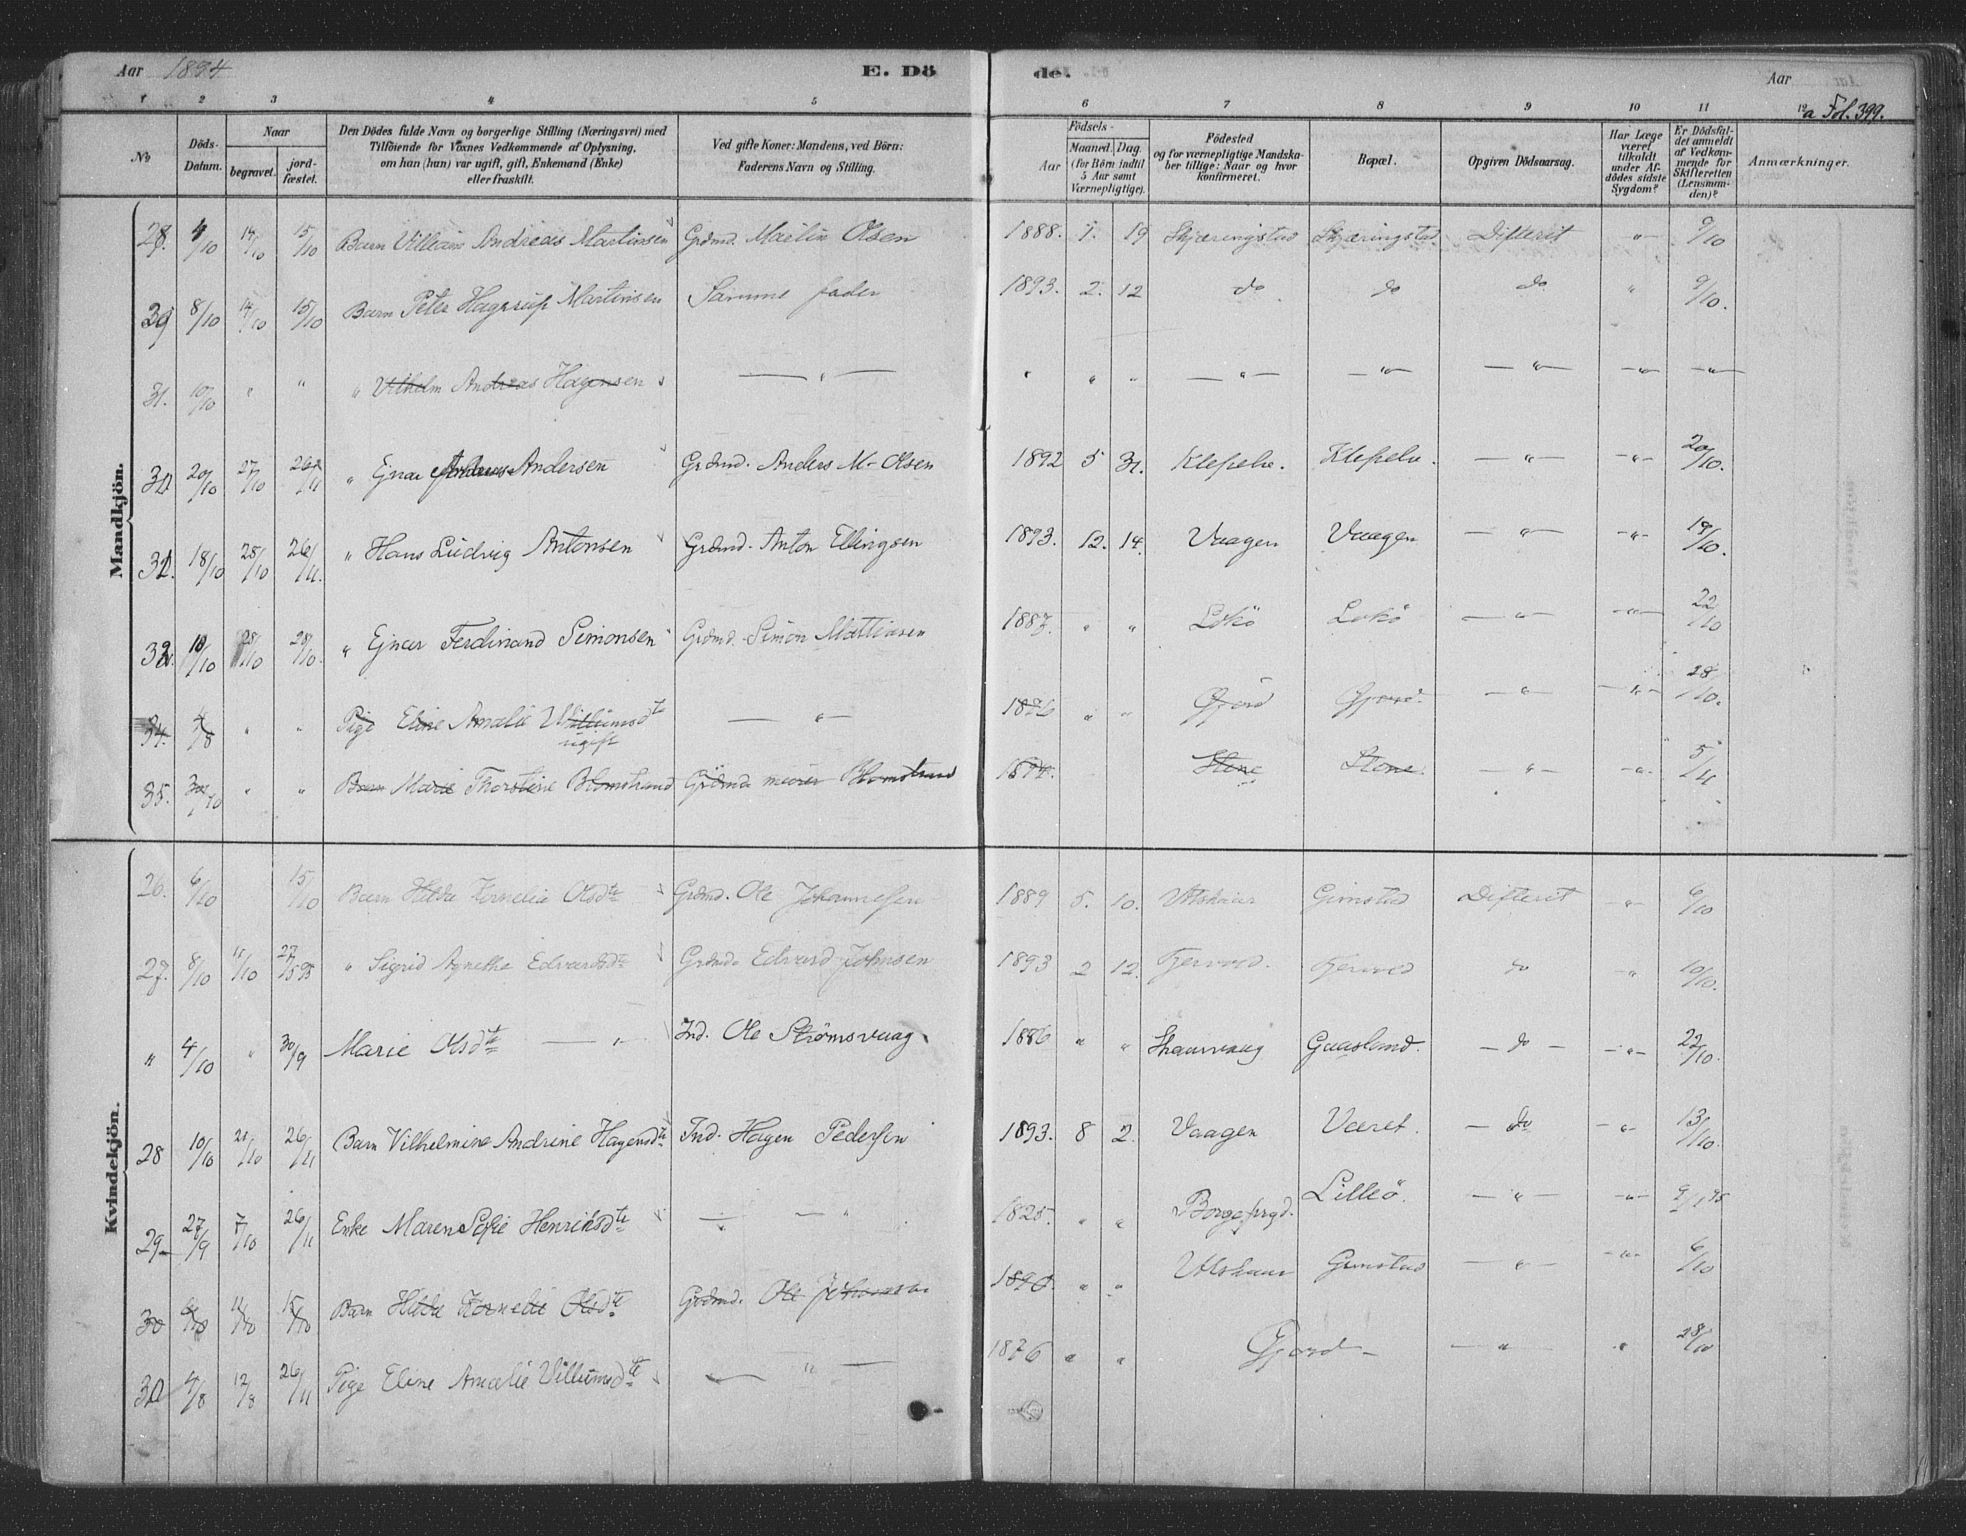 Aar 1894 E. Dö
de. Aar
a Fol. 399.
1 2 3 4 5 6 7 8 9 10 11 12
No
Döds-Datum.
Naar
begravet.
jord-fæstet.
Den Dödes fulde Navn og borgerlige Stilling (Næringsvei) med
Tilföiende for Voxnes Vedkommende af Oplysning,
om han (hun) var ugift, gift, Enkemand (Enke)
eller fraskilt.
Ved gifte Koner: Mandens, ved Börn:
Faderens Navn og Stilling.
Födsels-
Aar
Maaned. Dag.
(for Börn indtil
5 Aar samt
Værnepligtige).
Födested
og for værnepligtige Mandska-
ber tillige: Naar og hvor
konfirmeret.
Bopæl.
Opgiven Dödsaarsag.
Har Læge
været
tilkaldt
under Af-
dödes sidste
Sygdom?
Er Dödsfal-
det anmeldt
af Vedkom-
mende for
Skifteretten
(Lensman-
den)?
Anmærkninger.
Mandkjön.
4/10 14/10 15/10 Barn Villiam Andreas Martinsen Grdmd. Martin Olsen 1888. 1. 19 Skjæringstad Skjæringstad Difterit " 9/10
8/10 14/10 15/10 Barn Peter Hagerup Martinsen Samme fader 1893. 2. 12 do do do " 9/10.
31. 10/10 " " " Vilhelm Andreas Hagensen — " — " " " — " — — " — — " — — " — — " —
20/10 27/10 26/11 " Ejnar Andersen Grdmd. Anders M. Olsen 1892 5 31. Klepelv. Klepelv. — " — — " — 20/10.
18/10 28/10 26/11. " Hans Ludvig Antonsen Grdmd. Anton Ellingsen 1893. 12. 14. Vaagen Vaagen — " — — " — 19/10.
28/10 28/10. " Ejnar Ferdinand Simonsen Grdmd. Simon Mattiasen 1887. " " Lokö Lokö — " — — " — 22/10
34. 4/8 " " Pige Eline Amalie Villiumsdte ugift — " — 1876 " " Gjord Gjord. — " — — " — 28/10.
35. 30/10 " " Barn Marie Thorstine Blomstrand Grdmd. Blomstrand 1894. Stene Stene. — " — — " — 5/11
Kvindekjön.
26. 6/10 15/10 Barn Hilda Kornelia Olsdte Grdmd. Ole Johannesen 1889 5. 10. Utskaar Gimstad Difterit — " — 6/10
27. 8/10 11/10 27/5 95 " Sigrid Agnethe Edvardsdte Grdmd. Edvard Johnsen 1893 2 12. Tjervold. Tjervold do — " — 10/10.
" 4/10 " 30/9 Marie Olsdte — " Ind. Ole Strömsvaag 1886 " " Skaarvaag Gaaslund. — do — — " — 22/10.
28 10/10 21/10 26/11 Barn Vilhelmine Andrine Hagensdte Ind. Hagen Pedersen 1893. 8 2. Vaagen Været. — do — " — 13/10.
29 27/9 7/10 26/11 Enke Maren Sofie Henriksdte — — " 1825. " " Borge prgd. Lilleö. — " — — " — 9/1 95
30 6/10 11/10 15/10 Barn Hilda Kornelie Olsdte Grdmd. Ole Johannesen 1890. " " Utskaar Gimstad — " — — " — 6/10
4/8 12/8 26/11 Pige Eline Amalie Villiumsdte — " — 1876 " " Gjord — — " — " 28/10